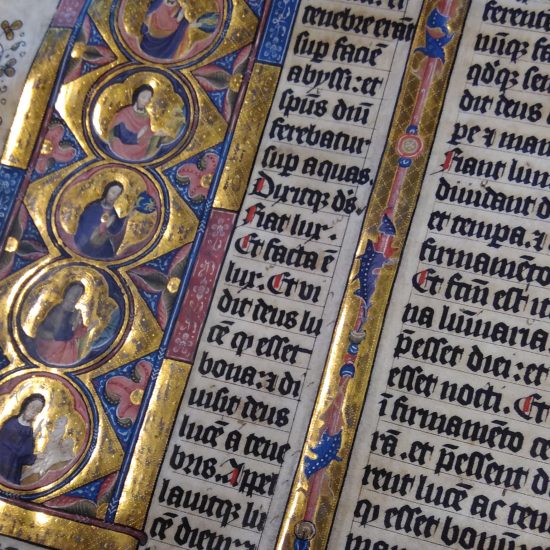 et
tenebre erāt
sup faciē
abyssi: et
spūs dnī
ferebatur
sup aquas.
Dixitqz ds̄.
Fiat lux.
Et facta ē
lux. Et vi
dit deus lu
cē qz esset
bona: ⁊ di
uisit deus
lucē a tene
bris. Appel
lauitqz lu
cē diem
ferenti
nūqz fa
qd'qz se
dit deus
pe ⁊ man
Fiant lum
diuidant d
et tempa. ⁊
firmamēto
Et fcm̄ est
na lumīaria
p̄esset diei: et
esset nocti. Et
ī firmamēto ce
rā. et p̄essent d
rent lucē ac ten
qz esset bonū